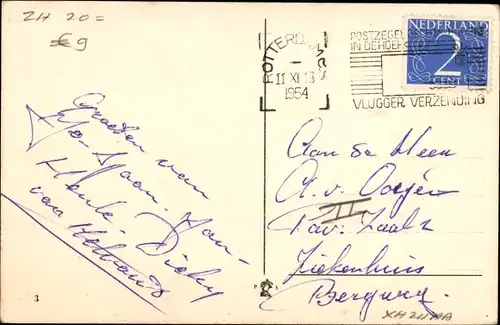 ZH 20=
€9
ROTTERDAM
11 XI 13
1954
POSTZEGEL
IN DE HOEK
VLUGGER VERZENDING
NEDERLAND
2
CENT
Groeten van
Henk. Dicky
van
Aan de Heer
A. v.
II
Pav. Zaal 2
Ziekenhuis
Bergweg
3